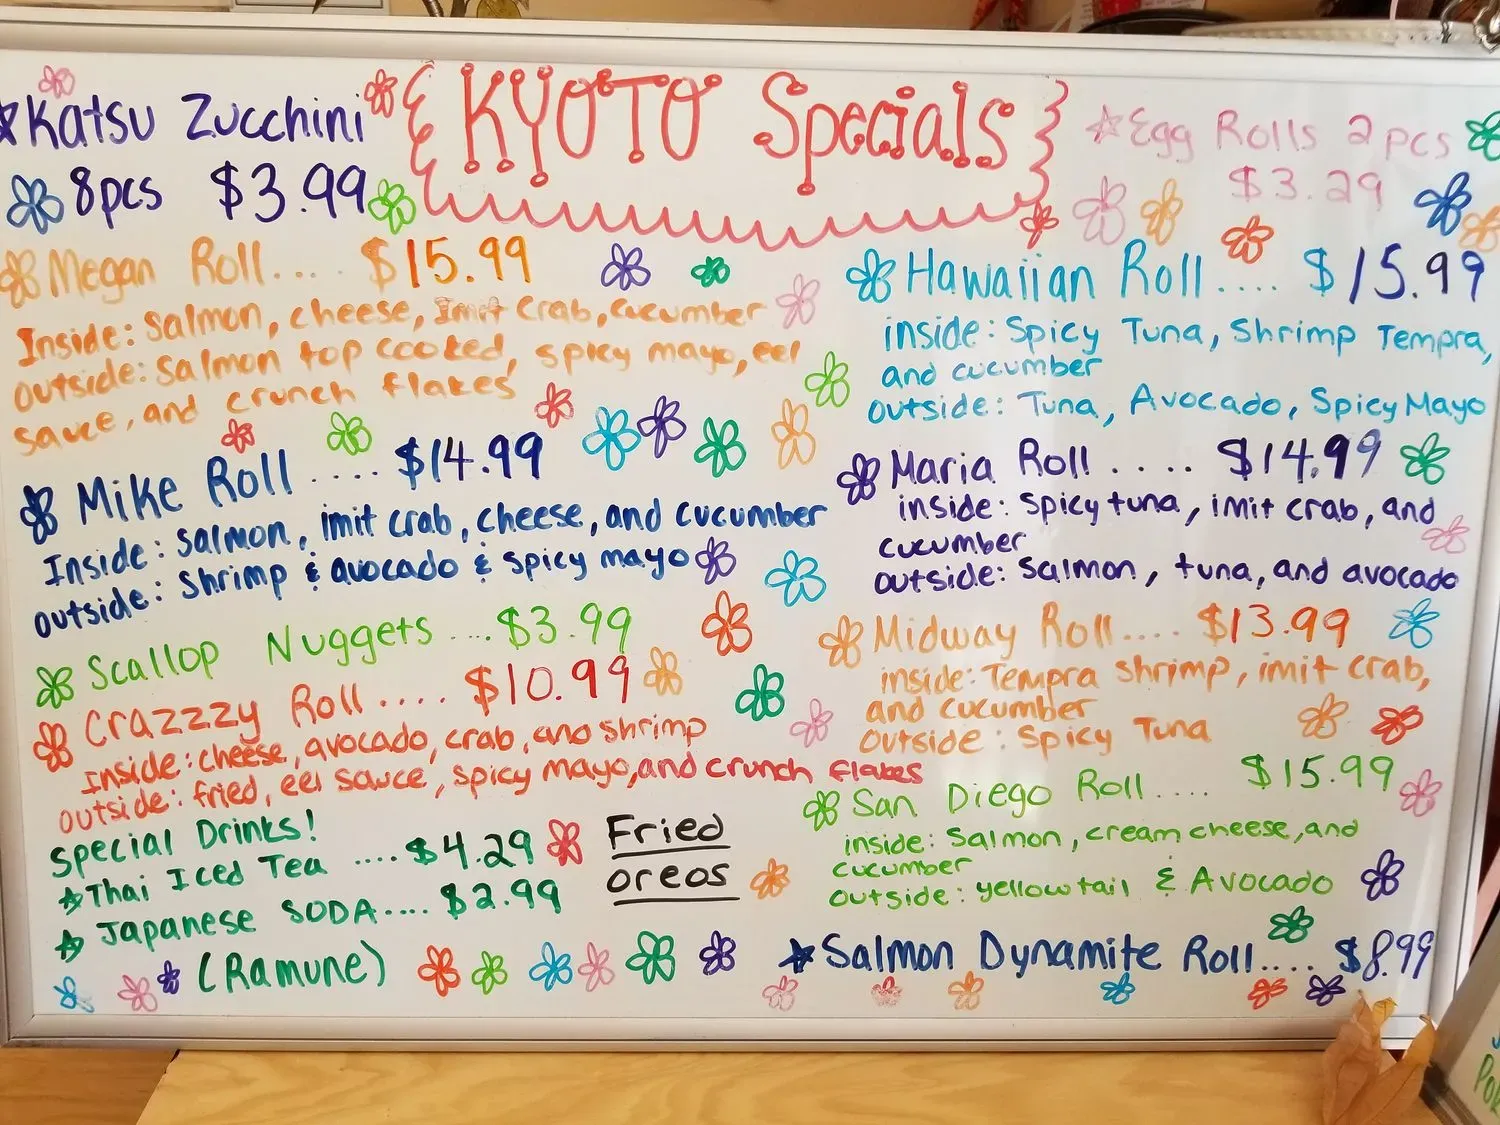 KYOTO Specials
Katsu Zucchini
8pcs $3.99
Egg Rolls 2pcs
$3.29
Megan Roll.... $15.99
Inside: Salmon, cheese, Imit Crab, cucumber
outside: Salmon top cooked, spicy mayo, eel
sauce, and crunch flakes
Mike Roll .... $14.99
Inside: salmon, imit crab, cheese, and cucumber
outside: shrimp & avocado & spicy mayo
Scallop Nuggets .... $3.99
Crazzzy Roll .... $10.99
Inside: cheese, avocado, crab, and shrimp
outside: fried, eel sauce, spicy mayo, and crunch flakes
Special Drinks!
Thai Iced Tea .... $4.29
Japanese SODA.... $2.99
(Ramune)
Fried
oreos
Hawaiian Roll .... $15.99
inside: Spicy Tuna, Shrimp Tempra,
and cucumber
outside: Tuna, Avocado, Spicy Mayo
Maria Roll .... $14.99
inside: spicy tuna, imit crab, and
cucumber
outside: salmon, tuna, and avocado
Midway Roll.... $13.99
inside: Tempra shrimp, imit crab,
and cucumber
outside: Spicy Tuna
San Diego Roll .... $15.99
inside: Salmon, cream cheese, and
cucumber
outside: yellowtail & Avocado
Salmon Dynamite Roll.... $8.99